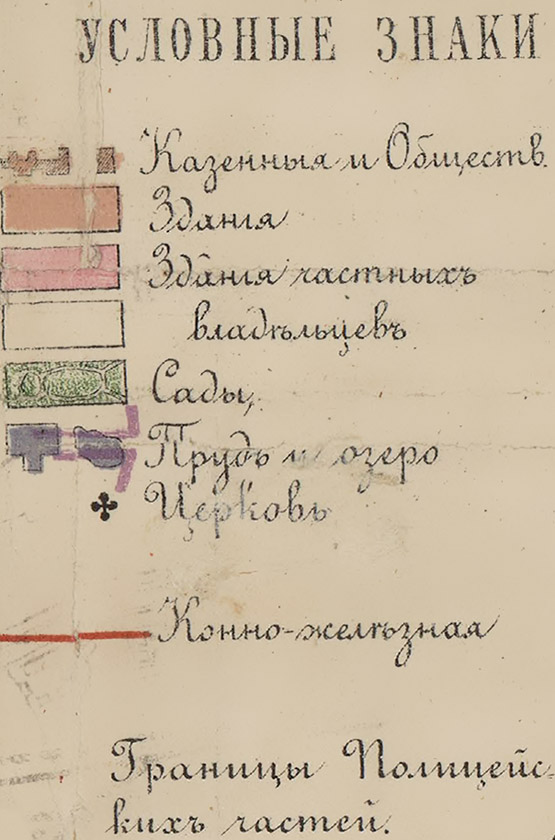 УСЛОВНЫЕ ЗНАКИ
Казенныя и Обществ.
Здания
Здания частныхъ
владѣльцевъ
Сады,
Прудъ и озеро
Церковь
Конно-желѣзная
Границы Полицейс-
кихъ частей.